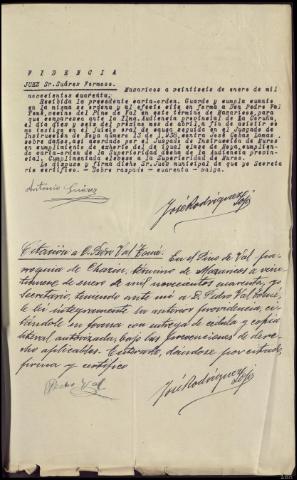 VIDENCIA
JUEZ Sr. Suárez Formoso. Mazaricos a veintisete de enero de mil
novecientos cuarenta.
Recibida la precedente carta-orden. Guarde y cumpla cuanto
en la misma se ordena y al efecto cite en forma a Don Pedro Val
Tomé, vecino del Pino de Val en este término de Mazaricos, para
que comparezca ante la Ilma. Audiencia provincial de La Coruña,
el día diez y seis del próximo mes de abril, a fin de asistir como
testigo en el juicio oral de causa seguida en el Juzgado de
Instrucción de Muros número 13 de 1.938, contra José Cabas Lamas
sobre daños, así acordado por el Juzgado de Instrucción de Muros
en cumplimiento de
carta-orden de la Superioridad
Cumplimentada elevese a la Superioridad de Muros.
Lo dispuso y firma dicho Sr. Juez municipal de que yo Secreta
rio certifico. - Sobre raspado - cuarenta - valga.
Antonio Suárez
José Rodríguez
Citación a D. Pedro Val Tomé. En el Pino de Val, pa
rroquia de Chacín, término de Mazaricos a vein
tinueve de enero de mil novecientos cuarenta, yo
Secretario, teniendo ante mí a D. Pedro Val Tomé,
le leí integramente la anterior providencia, ci
tándole en forma con entrega de cédula y copia
literal autorizada, bajo las prevenciones de dere
cho aplicables. Enterado, dándose por citado,
firma y certifico
Pedro Val
José Rodríguez